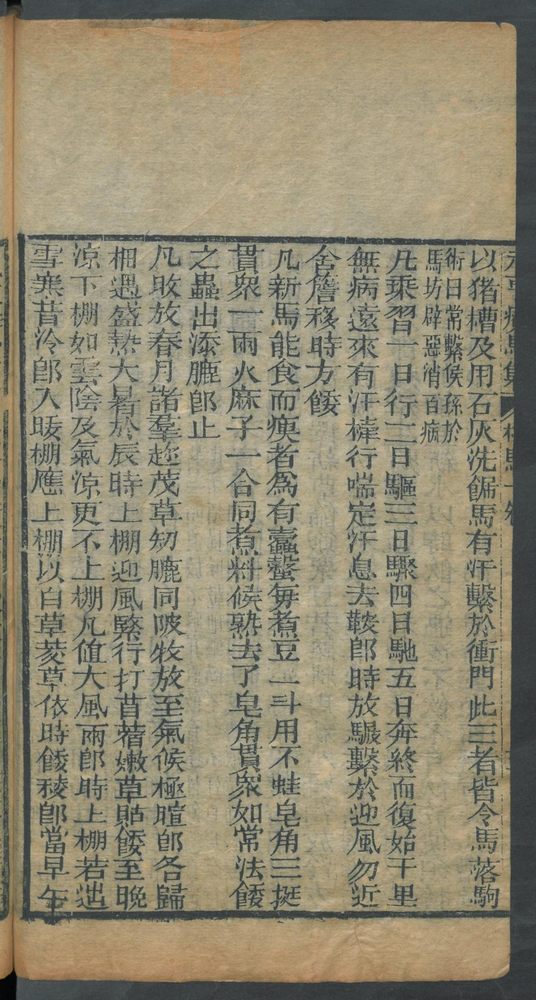 以猪槽及用石灰洗餶馬有汗繫於衝門此三者皆令馬落駒
術曰常繫候猻於
馬坊辟惡消百病
凡乘習一日行二日驅三日驟四日馳五日奔終而復始千里
無病遠來有汗樁行喘定汗息去鞍即時放騸繫於迎風勿近
舍簷移時方餧
凡新馬能食而瘐者為有蠹螫每煮豆一斗用不蛀皂角三挺
貫衆二兩火麻子一合同煮料候熟去了皂角貫衆如常法餧
之蟲出添臕即止
凡收放春月諸羣趂茂草幼臕同陂牧放至氣候極暄即各歸
棚遇盛熱大暑於辰時上棚迎風緊行打苜蓿嫩草貼餧至晚
涼下棚如雲陰及氣涼更不上棚凡值大風雨即時上棚若遇
雪寒昔冷即入暖棚應上棚以白草茭草依時餧稜即當早午